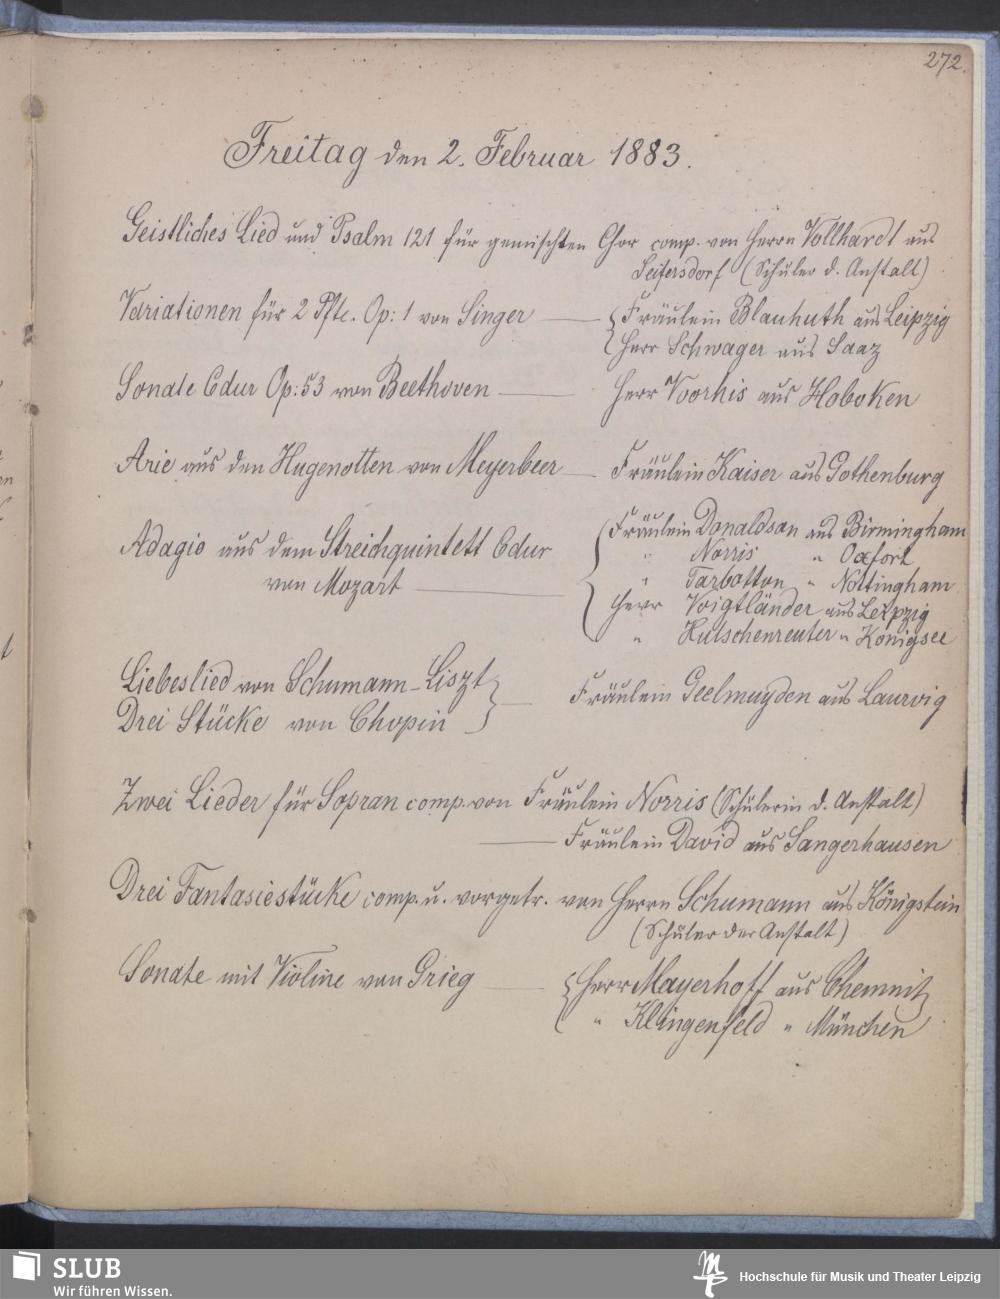 272.
Freitag den 2. Februar 1883.
Geistliches Lied und Psalm 121 für gemischten Chor comp. von Herrn Vollhardt aus
Seifersdorf (Schüler d. Anstalt)
Variationen für 2 Pfte. Op: 1 von Singer — Fräulein Blauhuth aus Leipzig
Herr Schwager aus Saaz
Sonate Cdur Op: 53 von Beethoven — Herr Voorhis aus Hoboken
Arie aus den Hugenotten von Meyerbeer — Fräulein Kaiser aus Gothenburg
Fräulein Donaldson aus Birmingham
Adagio aus dem Streichquintett Cdur " Norris " Oxfort
von Mozart — " Tarbotton " Nottingham
Herr Voigtländer aus Leipzig
" Hutschenreuter " Königsee
Liebeslied von Schumann-Liszt
Drei Stücke von Chopin — Fräulein Geelmuyden aus Laurvig
Zwei Lieder für Sopran comp. von Fräulein Norris (Schülerin d. Anstalt)
— Fräulein David aus Sangerhausen
Drei Fantasiestücke comp. u. vorgetr. von Herrn Schumann aus Königstein
(Schüler der Anstalt)
Sonate mit Violine von Grieg — Herr Mayerhoff aus Chemnitz
" Klingenfeld " München
SLUB
Wir führen Wissen.
Hochschule für Musik und Theater Leipzig